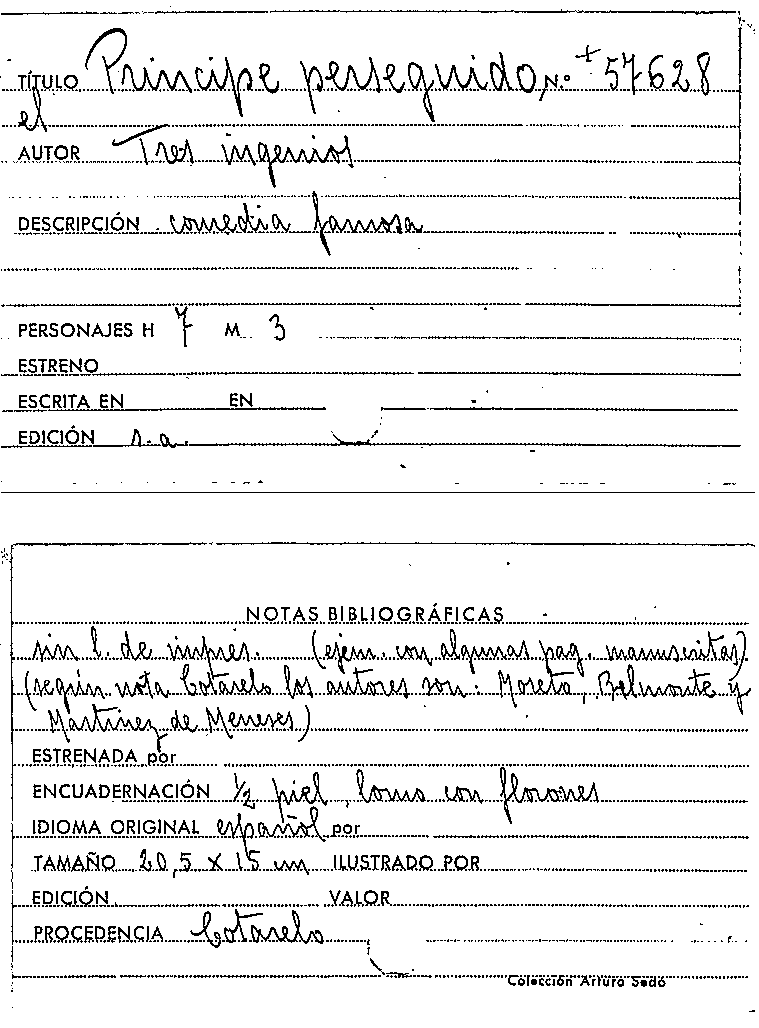 TÍTULO Príncipe perseguido, N.º + 57628
el
AUTOR Tres ingenios
DESCRIPCIÓN comedia famosa
PERSONAJES H 7 M 3
ESTRENO
ESCRITA EN EN
EDICIÓN s.a.
NOTAS BIBLIOGRÁFICAS
sin l. de impres. (ejem. con algunas pag. manuscritas)
(según nota Cotarelo los autores son: Moreto, Belmonte y
Martínez de Meneses)
ESTRENADA por
ENCUADERNACIÓN 1/2 piel, lomo con florones
IDIOMA ORIGINAL español por
TAMAÑO 20,5 x 15 cm ILUSTRADO POR
EDICIÓN VALOR
PROCEDENCIA Cotarelo
Colección Arturo Sedó